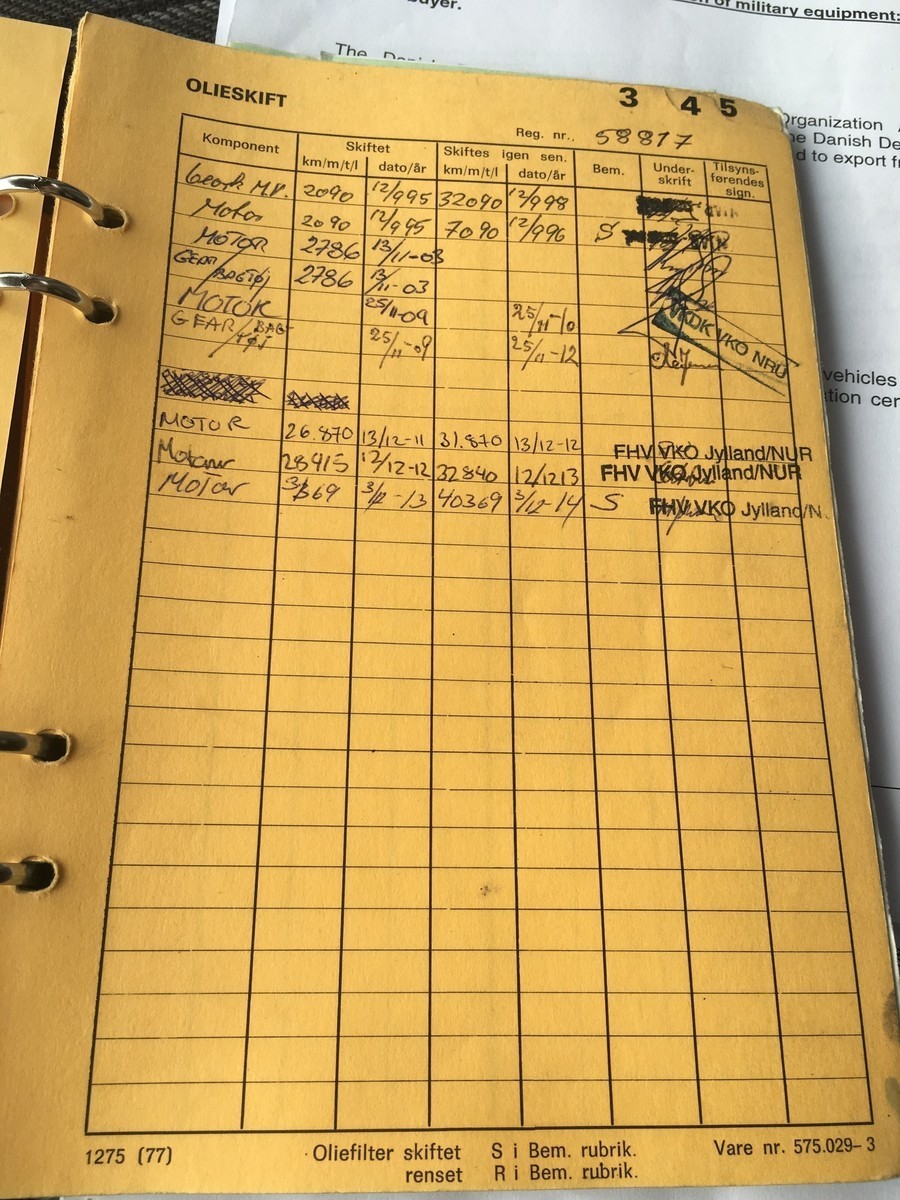 buyer.
of military equipment:
The Danish
Organization
he Danish De
d to export fr
vehicles
tion cer
OLIESKIFT
3 4 5
Reg. nr., 58817
Komponent Skiftet Skiftes igen sen. Bem. Under-skrift Tilsyns-førendes sign.
km/m/t/l dato/år km/m/t/l dato/år
M.V. 2090 12/995 32090 12/998
Motor 2090 12/995 7090 12/996 S
MOTOR 2786 13/11-03
GEAR/BAGTØJ 2786 13/11-03
MOTOR 25/11-09 25/11-10
GEAR/BAGTØJ 25/11-09 25/11-12
VKDK VKO NRU
MOTOR 26.870 13/12-11 31.870 13/12-12 FHV VKO Jylland/NUR
28415 12/12-12 32840 12/1213 FHV VKO Jylland/NUR
Motor 3/12-13 40369 3/12-14 S FHV VKO Jylland/N
1275 (77) Oliefilter skiftet S i Bem. rubrik. Vare nr. 575.029-3
renset R i Bem. rubrik.